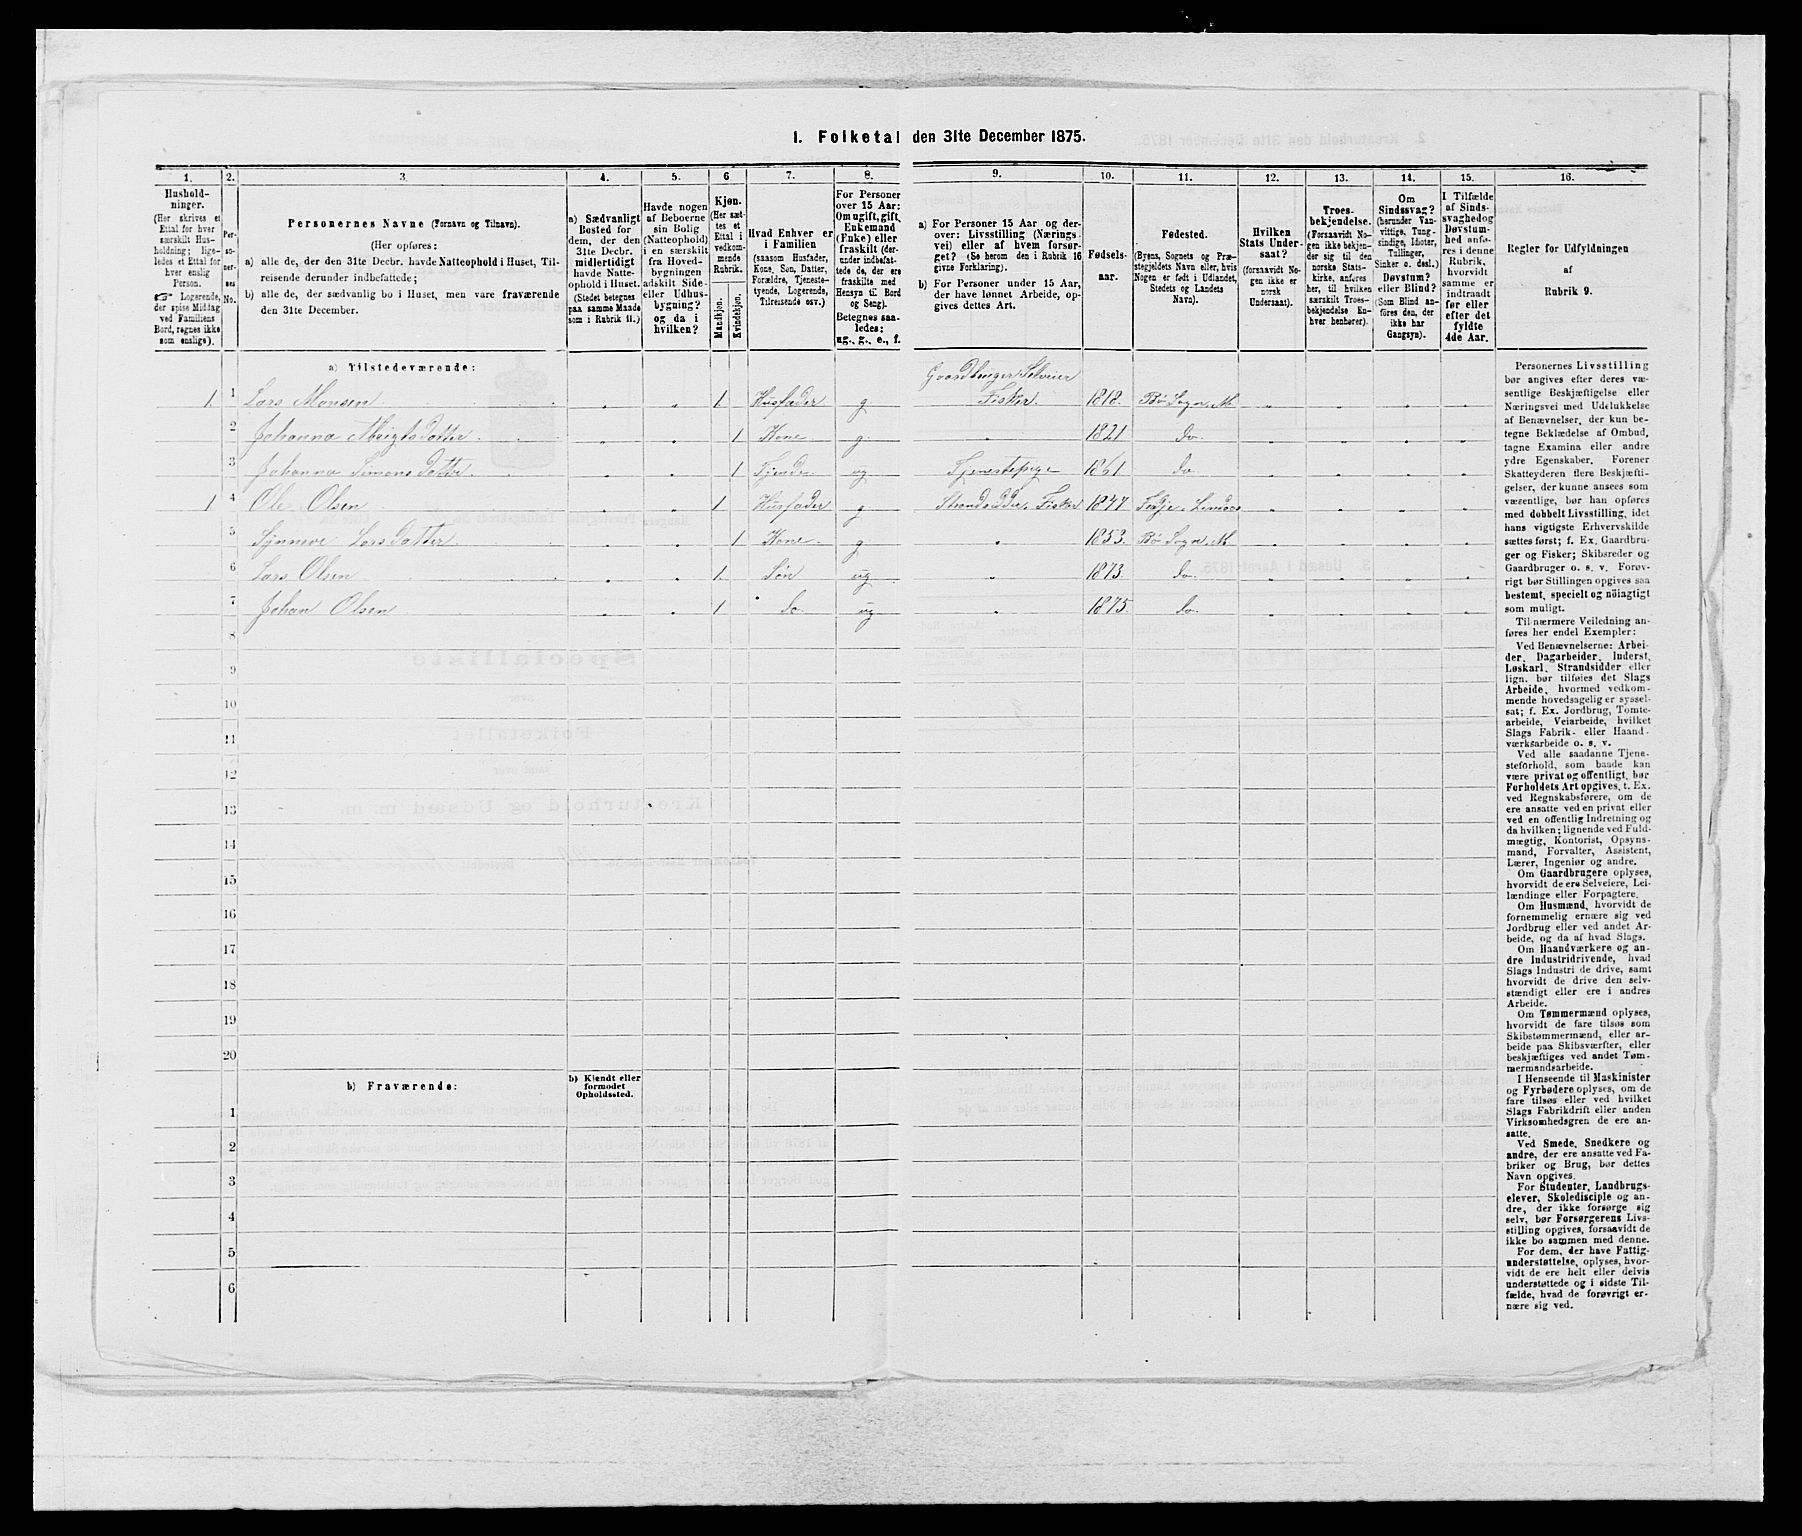 1. Folketal den 31te December 1875.
1. 2. 3. 4. 5. 6 7. 8. 9. 10. 11. 12. 13. 14. 15. 16.
Hushold-
ninger.
(Her skrives et
Ettal for hver
særskilt Hus-
holdning; lige-
ledes et Ettal for
hver enslig
Person.
☞ Logerende,
der spise Middag
ved Familiens
Bord, regnes ikke
som enslige).
Per-
so-
ner-
nes
No.
Personernes Navne (Fornavn og Tilnavn).
(Her opføres:
a) alle de, der den 31te Decbr. havde Natteophold i Huset, Til-
reisende derunder indbefattede;
b) alle de, der sædvanlig bo i Huset, men vare fraværende
den 31te December.
a) Sædvanligt
Bosted for
dem, der den
31te Decbr.
midlertidigt
havde Natte-
ophold i Huset.
(Stedet betegnes
paa samme Maade
som i Rubrik 11.)
Havde nogen
af Beboerne
sin Bolig
(Natteophold)
i en særskilt
fra Hoved-
bygningen
adskilt Side-
eller Udhus-
bygning?
og da i
hvilken?
Kjøn.
(Her sæt-
tes et
Ettal i
vedkom-
mende
Rubrik.
Mandkjøn.
Kvindekjøn.
Hvad Enhver er
i Familien
(saasom Husfader,
Kone, Søn, Datter,
Forældre, Tjeneste-
tyende, Logerende,
Tilreisende osv.)
For Personer
over 15 Aar:
Om ugift, gift,
Enkemand
(Enke) eller
fraskilt (der-
under indbefat-
tede de, der ere
fraskilte med
Hensyn til Bord
og Seng).
Betegnes saa-
ledes:
ug., g., e., f.
a) For Personer 15 Aar og der-
over: Livsstilling (Nærings-
vei) eller af hvem forsør-
get? (Se herom den i Rubrik 16
givne Forklaring).
b) For Personer under 15 Aar,
der have lønnet Arbeide, op-
gives dettes Art.
Fødsels-
aar.
Fødested.
(Byens, Sognets og Præ-
stegjeldets Navn eller, hvis
Nogen er født i Udlandet,
Stedets og Landets
Navn).
Hvilken
Stats Under-
saat?
(forsaavidt No-
gen ikke er
norsk
Undersaat).
Troes-
bekjendelse.
(Forsaavidt No-
gen ikke bekjen-
der sig til den
norske Stats-
kirke, anføres
her, til hvilken
særskilt Troes-
bekjendelse En-
hver henhører).
Om
Sindssvag?
(herunder Van-
vittige, Tung-
sindige, Idioter,
Tullinger,
Sinker o. desl.)
Døvstum?
eller Blind?
(Som Blind an-
føres den, der
ikke har
Gangsyn).
I Tilfælde
af Sinds-
svaghed og
Døvstum-
hed anfø-
res i denne
Rubrik,
hvorvidt
samme er
indtraadt
før eller
efter det
fyldte
4de Aar.
Regler for Udfyldningen
af
Rubrik 9.
a) Tilstedeværende:
Gaardbruger Selveier
1. 1 Lars Monsen 1. Husfader g. Fisker. 1818. Bø Sogn, M
2 Johanna Abrigtsdatter 1 Kone g. 1821 do.
3 Johanna Simonsdatter 1 Tjende ug Tjenestepige 1861 do
1 4 Ole Olsen 1 Husfader g. Strandsidder, Fisker 1847 Fedje, Lindaas
5 Synneve Larsdatter 1 Kone. g. 1853. Bø Sogn, M
6 Lars Olsen 1. Søn ug 1873. do.
7 Johan Olsen 1 do. ug 1875. do.
8
9
10
11
12
13
14
15
16
17
18
19
20
b) Fraværende:
b) Kjendt eller
formodet
Opholdssted.
1
2
3
4
5
6
Personernes Livsstilling
bør angives efter deres væ-
sentlige Beskjæftigelse eller
Næringsvei med Udelukkelse
af Benævnelser, der kun be-
tegne Beklædelse af Ombud,
tagne Examina eller andre
ydre Egenskaber. Forener
Skatteyderen flere Beskjæfti-
gelser, der kunne ansees som
væsentlige, bør han opføres
med dobbelt Livsstilling, idet
hans vigtigste Erhvervskilde
sættes først; f. Ex. Gaardbru-
ger og Fisker; Skibsreder og
Gaardbruger o. s. v. Forøv-
rigt bør Stillingen opgives saa
bestemt, specielt og nöiagtigt
som muligt.
Til nærmere Veiledning an-
føres her endel Exempler:
Ved Benævnelserne: Arbei-
der, Dagarbeider, Inderst,
Løskarl, Strandsidder eller
lign. bør tilføies det Slags
Arbeide, hvormed vedkom-
mende hovedsagelig er syssel-
sat; f. Ex. Jordbrug, Tomte-
arbeide, Veiarbeide, hvilket
Slags Fabrik- eller Haand-
værksarbeide o. s. v.
Ved alle saadanne Tjene-
steforhold, som baade kan
være privat og offentligt, bør
Forholdets Art opgives, t. Ex.
ved Regnskabsførere, om de
ere ansatte ved en privat eller
ved en offentlig Indretning og
da hvilken; lignende ved Fuld-
mægtig, Kontorist, Opsyns-
mand, Forvalter, Assistent,
Lærer, Ingeniør og andre.
Om Gaardbrugere oplyses,
hvorvidt de ere Selveiere, Lei-
lændinge eller Forpagtere.
Om Husmænd, hvorvidt de
fornemmelig ernære sig ved
Jordbrug eller ved andet Ar-
beide, og da af hvad Slags.
Om Haandværkere og an-
dre Industridrivende, hvad
Slags Industri de drive, samt
hvorvidt de drive den selv-
stændigt eller ere i andres
Arbeide.
Om Tømmermænd oplyses,
hvorvidt de fare tilsøs som
Skibstømmermænd, eller ar-
beide paa Skibsværfter, eller
beskjæftiges ved andet Tøm-
mermandsarbeide.
I Henseende til Maskinister
og Fyrbødere oplyses, om de
fare tilsøs eller ved hvilket
Slags Fabrikdrift eller anden
Virksomhedsgren de ere an-
satte.
Ved Smede, Snedkere og
andre, der ere ansatte ved Fa-
briker og Brug, bør dettes
Navn opgives.
For Studenter, Landbrugs-
elever, Skoledisciple og an-
dre, der ikke forsørge sig
selv, bør Forsørgerens Livs-
stilling opgives, forsaavidt de
ikke bo sammen med denne.
For dem, der have Fattig-
understøttelse, oplyses, hvor-
vidt de ere helt eller delvis
understøttede og i sidste Til-
fælde, hvad de forøvrigt er-
nære sig ved.